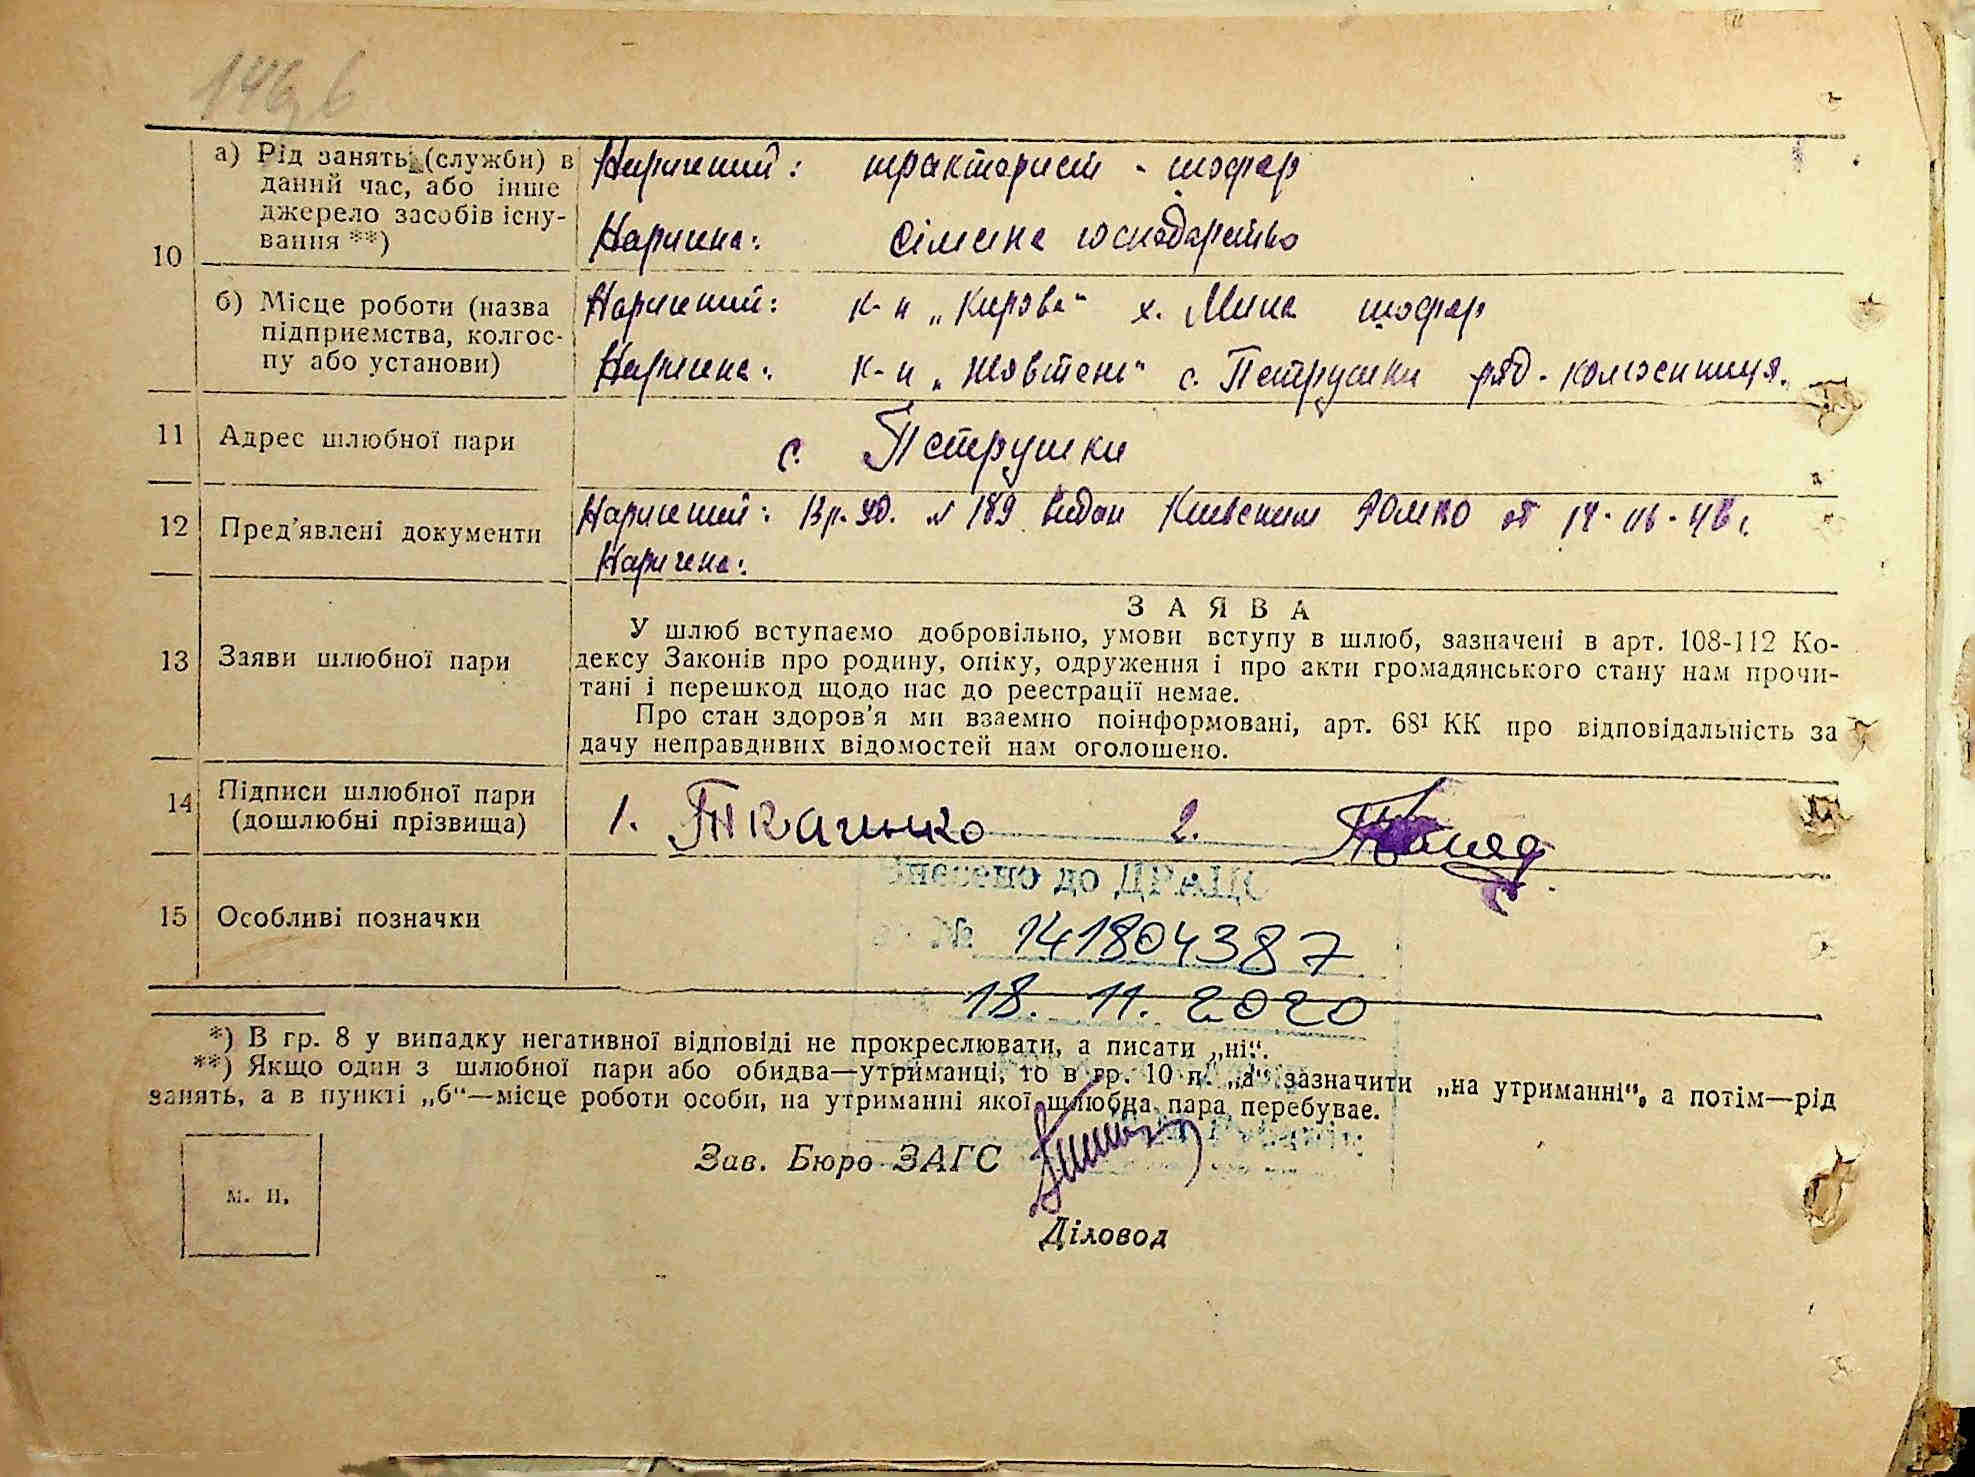 146
10
а) Рід занять (служби) в даний час, або інше джерело засобів існування **)
Наричений: тракторист - шофер
Наричена: сільське господарство
б) Місце роботи (назва підприємства, колгоспу або установи)
Наричений: к-п „Кирова“ х. Мила шофер
Наричена: к-п „Жовтень“ с. Петрушки ряд. колгоспниця.
11 Адрес шлюбної пари
с. Петрушки
12 Пред’явлені документи
Наричений: № 189 видан Київским от
Наричена:
13 Заяви шлюбної пари
ЗАЯВА
У шлюб вступаємо добровільно, умови вступу в шлюб, зазначені в арт. 108-112 Ко-
дексу Законів про родину, опіку, одруження і про акти громадянського стану нам прочи-
тані і перешкод щодо нас до реєстрації немає.
Про стан здоров’я ми взаємно поінформовані, арт. 68¹ КК про відповідальність за
дачу неправдивих відомостей нам оголошено.
14 Підписи шлюбної пари (дошлюбні прізвища)
1. Ткаченко 2.
15 Особливі позначки
№ 141804387
18. 11. 2020
*) В гр. 8 у випадку негативної відповіді не прокреслювати, а писати „ні“.
**) Якщо один з шлюбної пари або обидва—утриманці, то в гр. 10 п. „а“ зазначити „на утриманні“, а потім—рід
занять, а в пункті „б“—місце роботи особи, на утриманні якої шлюбна пара перебуває.
Зав. Бюро ЗАГС
м. п.
Діловод